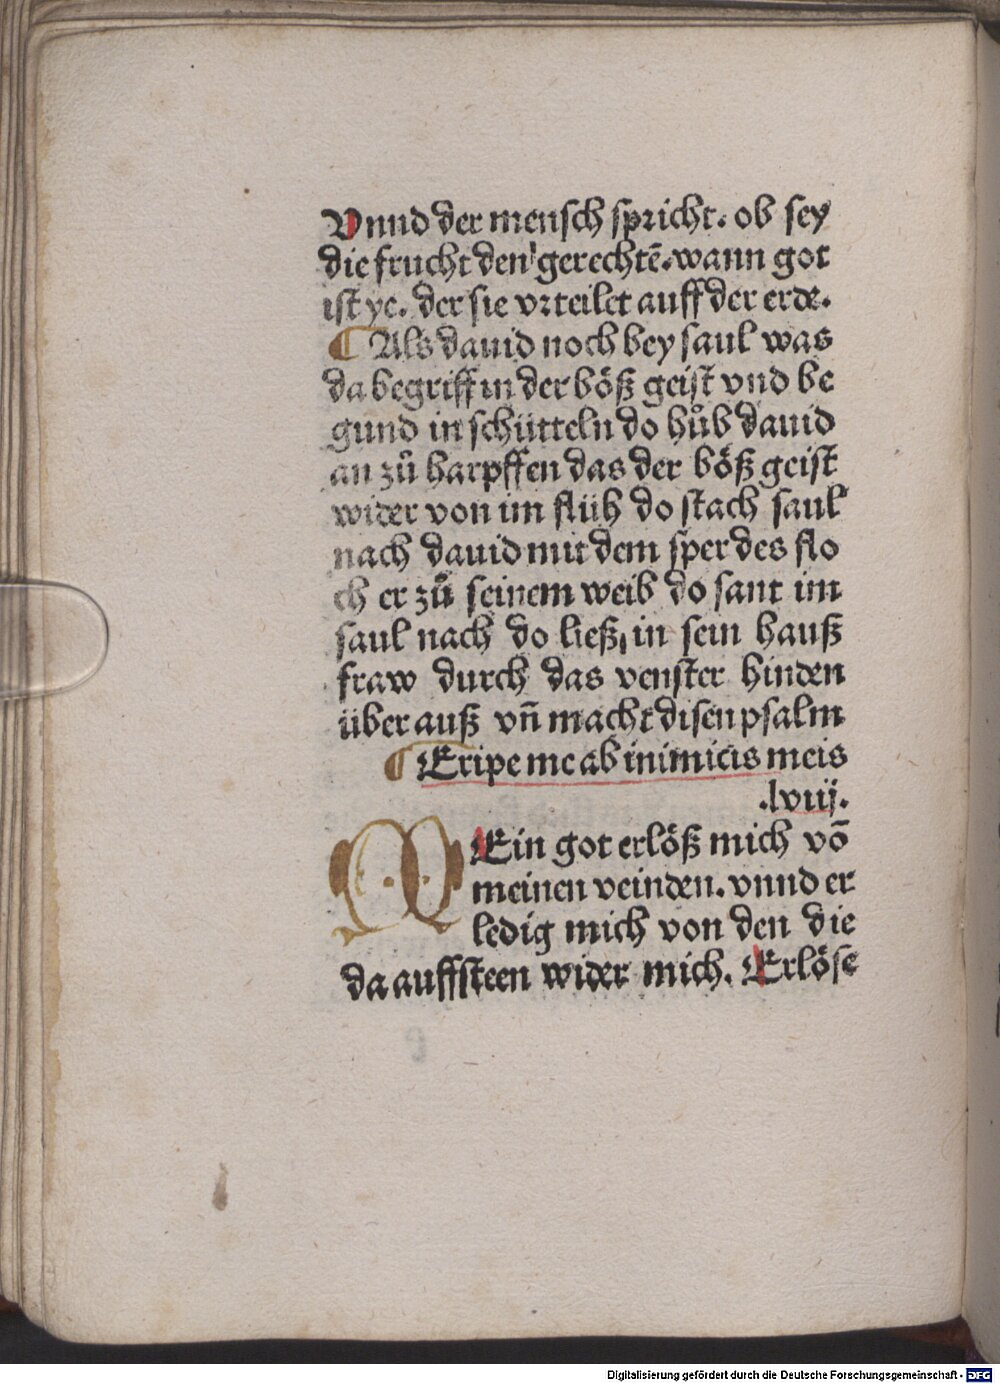 Vnnd der mensch spricht. ob sey
die frucht den gerechtē. wann got
ist ye. der sie vrteilet auff der erde.
¶ Als dauid noch bey saul was
da begriff in der böß geist vnd be
gund in schütteln do hůb dauid
an zů harpffen das der böß geist
wider von im flüh do stach saul
nach dauid mit dem sper des flo
ch er zů seinem weib do sant im
saul nach do ließ in sein hauß
fraw durch das venster hinden
über auß vn̄ macht disen psalm
¶ Eripe me ab inimicis meis
.lviij.
MEin got erlöß mich vō
meinen veinden. vnnd er
ledig mich von den die
da auffsteen wider mich. Erlöse
Digitalisierung gefördert durch die Deutsche Forschungsgemeinschaft - DFG